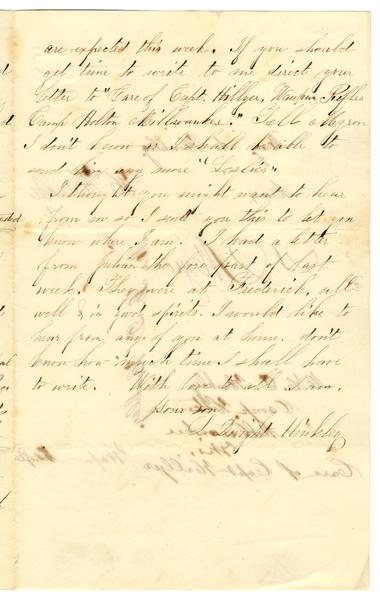 are expected this week. If you should
get time to write to me direct your
letter to "Care of Capt. Hillyer, Waupun Rifles
Camp Holton Milwaukee." Tell Myron
I don't know as I shall be able to
send him any more "Leslies"
I thought you might want to hear
from me so I send you this to let you
know where I am. I had a letter
from Julian the fore part of last
week. They were at Frederick, all
well & in good spirits. I would like to
hear from any of you at home. don't
know how much time I shall have
to write. With love to all I am,
Your son
Dwight Hinkley
Care of Capt Hillyer